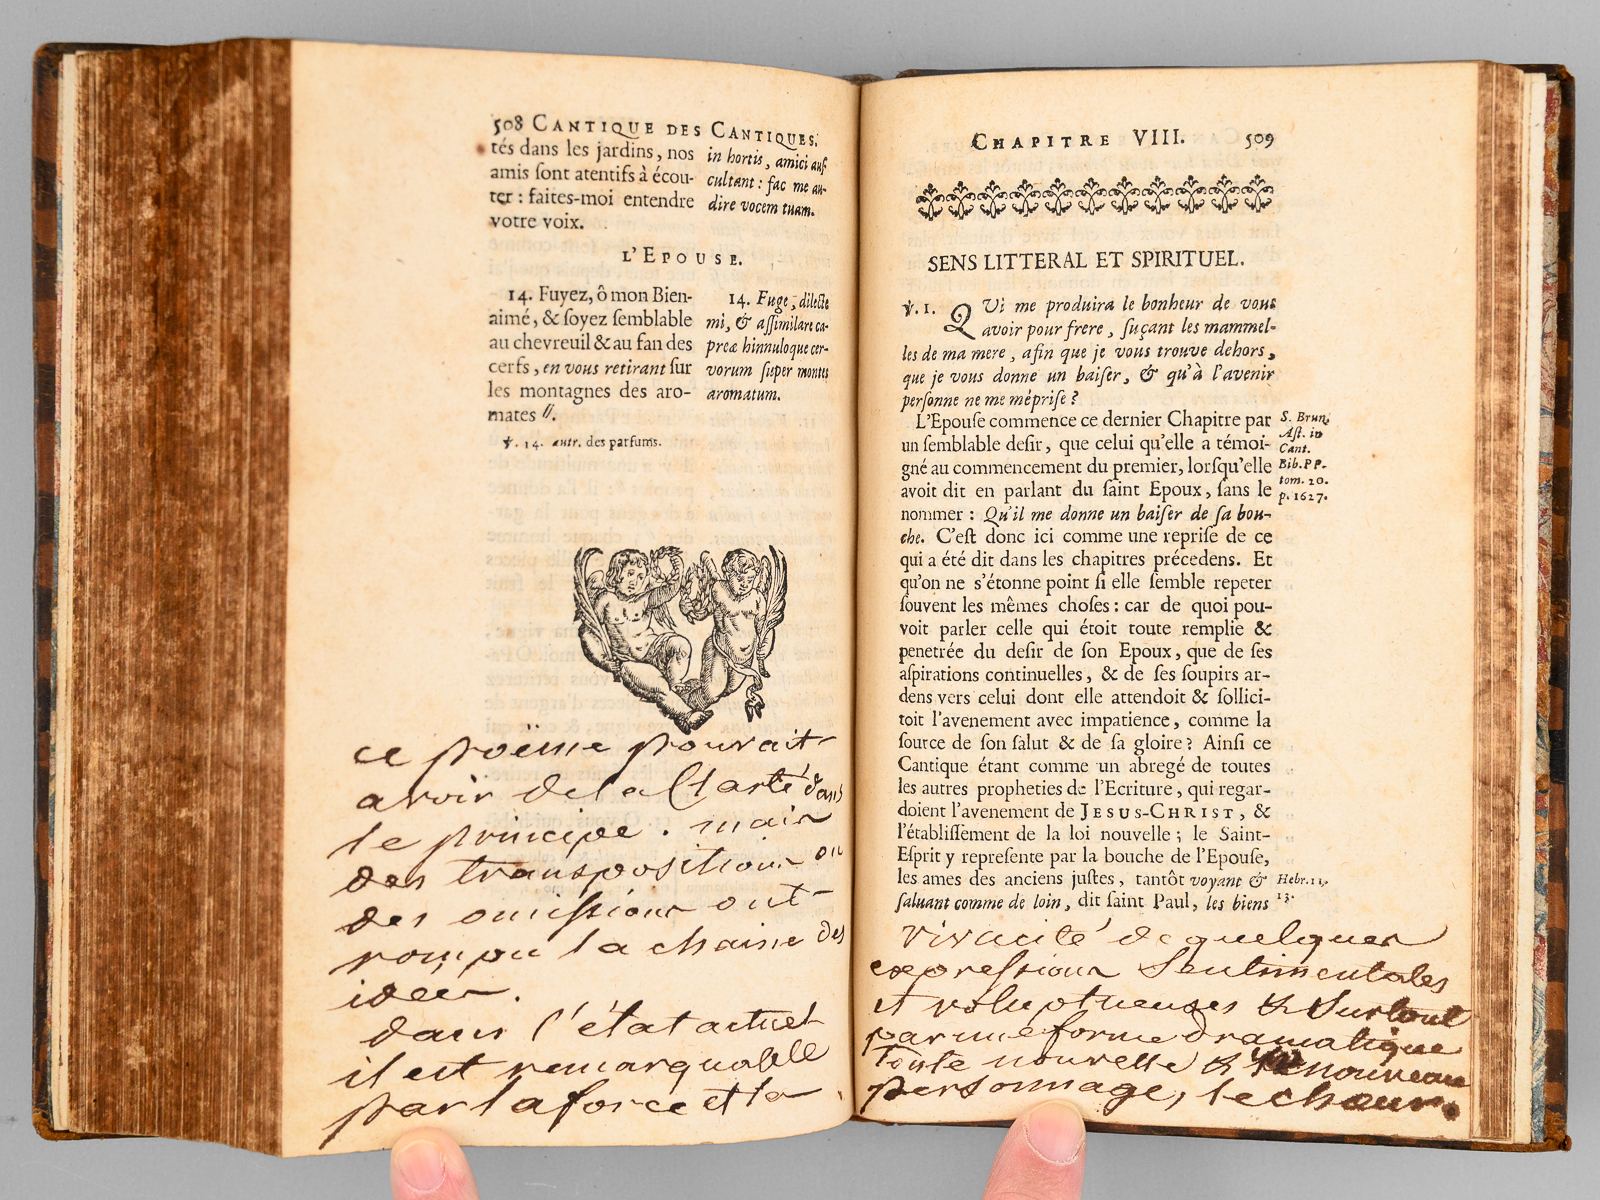 508 CANTIQUE DES CANTIQUES.
tés dans les jardins, nos
amis ſont atentifs à écou-
ter : faites-moi entendre
votre voix.
in hortis, amici auſ-
cultant : fac me au-
dire vocem tuam.
L'EPOUSE.
14. Fuyez, ô mon Bien-
aimé, & ſoyez ſemblable
au chevreuil & au fan des
cerfs, en vous retirant ſur
les montagnes des aro-
mates //.
14. Fuge, dilecte
mi, & aſſimilare ca-
preæ hinnuloque cer-
vorum ſuper montes
aromatum.
℣. 14. autr. des parfums.
ce poëme pouvait
avoir de la Clarté dans
le principe. mais
des transpositions ou
des omissions ont
rompu la chaine des
idees.
dans l'état actuel
il est remarquable
par la force et la
CHAPITRE VIII. 509
SENS LITTERAL ET SPIRITUEL.
℣. 1. QUi me produira le bonheur de vous
avoir pour frere, ſuçant les mammel-
les de ma mere, afin que je vous trouve dehors,
que je vous donne un baiſer, & qu'à l'avenir
perſonne ne me mépriſe ?
L'Epouſe commence ce dernier Chapitre par
un ſemblable deſir, que celui qu'elle a témoi-
gné au commencement du premier, lorſqu'elle
avoit dit en parlant du ſaint Epoux, ſans le
nommer : Qu'il me donne un baiſer de ſa bou-
che. C'eſt donc ici comme une repriſe de ce
qui a été dit dans les chapitres précedens. Et
qu'on ne s'étonne point ſi elle ſemble repeter
ſouvent les mêmes choſes : car de quoi pou-
voit parler celle qui étoit toute remplie &
penetrée du deſir de ſon Epoux, que de ſes
aſpirations continuelles, & de ſes ſoupirs ar-
dens vers celui dont elle attendoit & ſollici-
toit l'avenement avec impatience, comme la
ſource de ſon ſalut & de ſa gloire ? Ainſi ce
Cantique étant comme un abregé de toutes
les autres propheties de l'Ecriture, qui regar-
doient l'avenement de JESUS-CHRIST, &
l'établiſſement de la loi nouvelle ; le Saint-
Eſprit y repreſente par la bouche de l'Epouſe,
les ames des anciens juſtes, tantôt voyant &
ſaluant comme de loin, dit ſaint Paul, les biens
S. Brun.
Aſt. in
Cant.
Bib. PP.
tom. 20.
p. 1627.
Hebr. 11.
13.
vivacité de quelques
expressions Sentimentales
et voluptueuses & Surtout
par une forme dramatique
toute nouvelle & nouveau
personnage, le chœur.